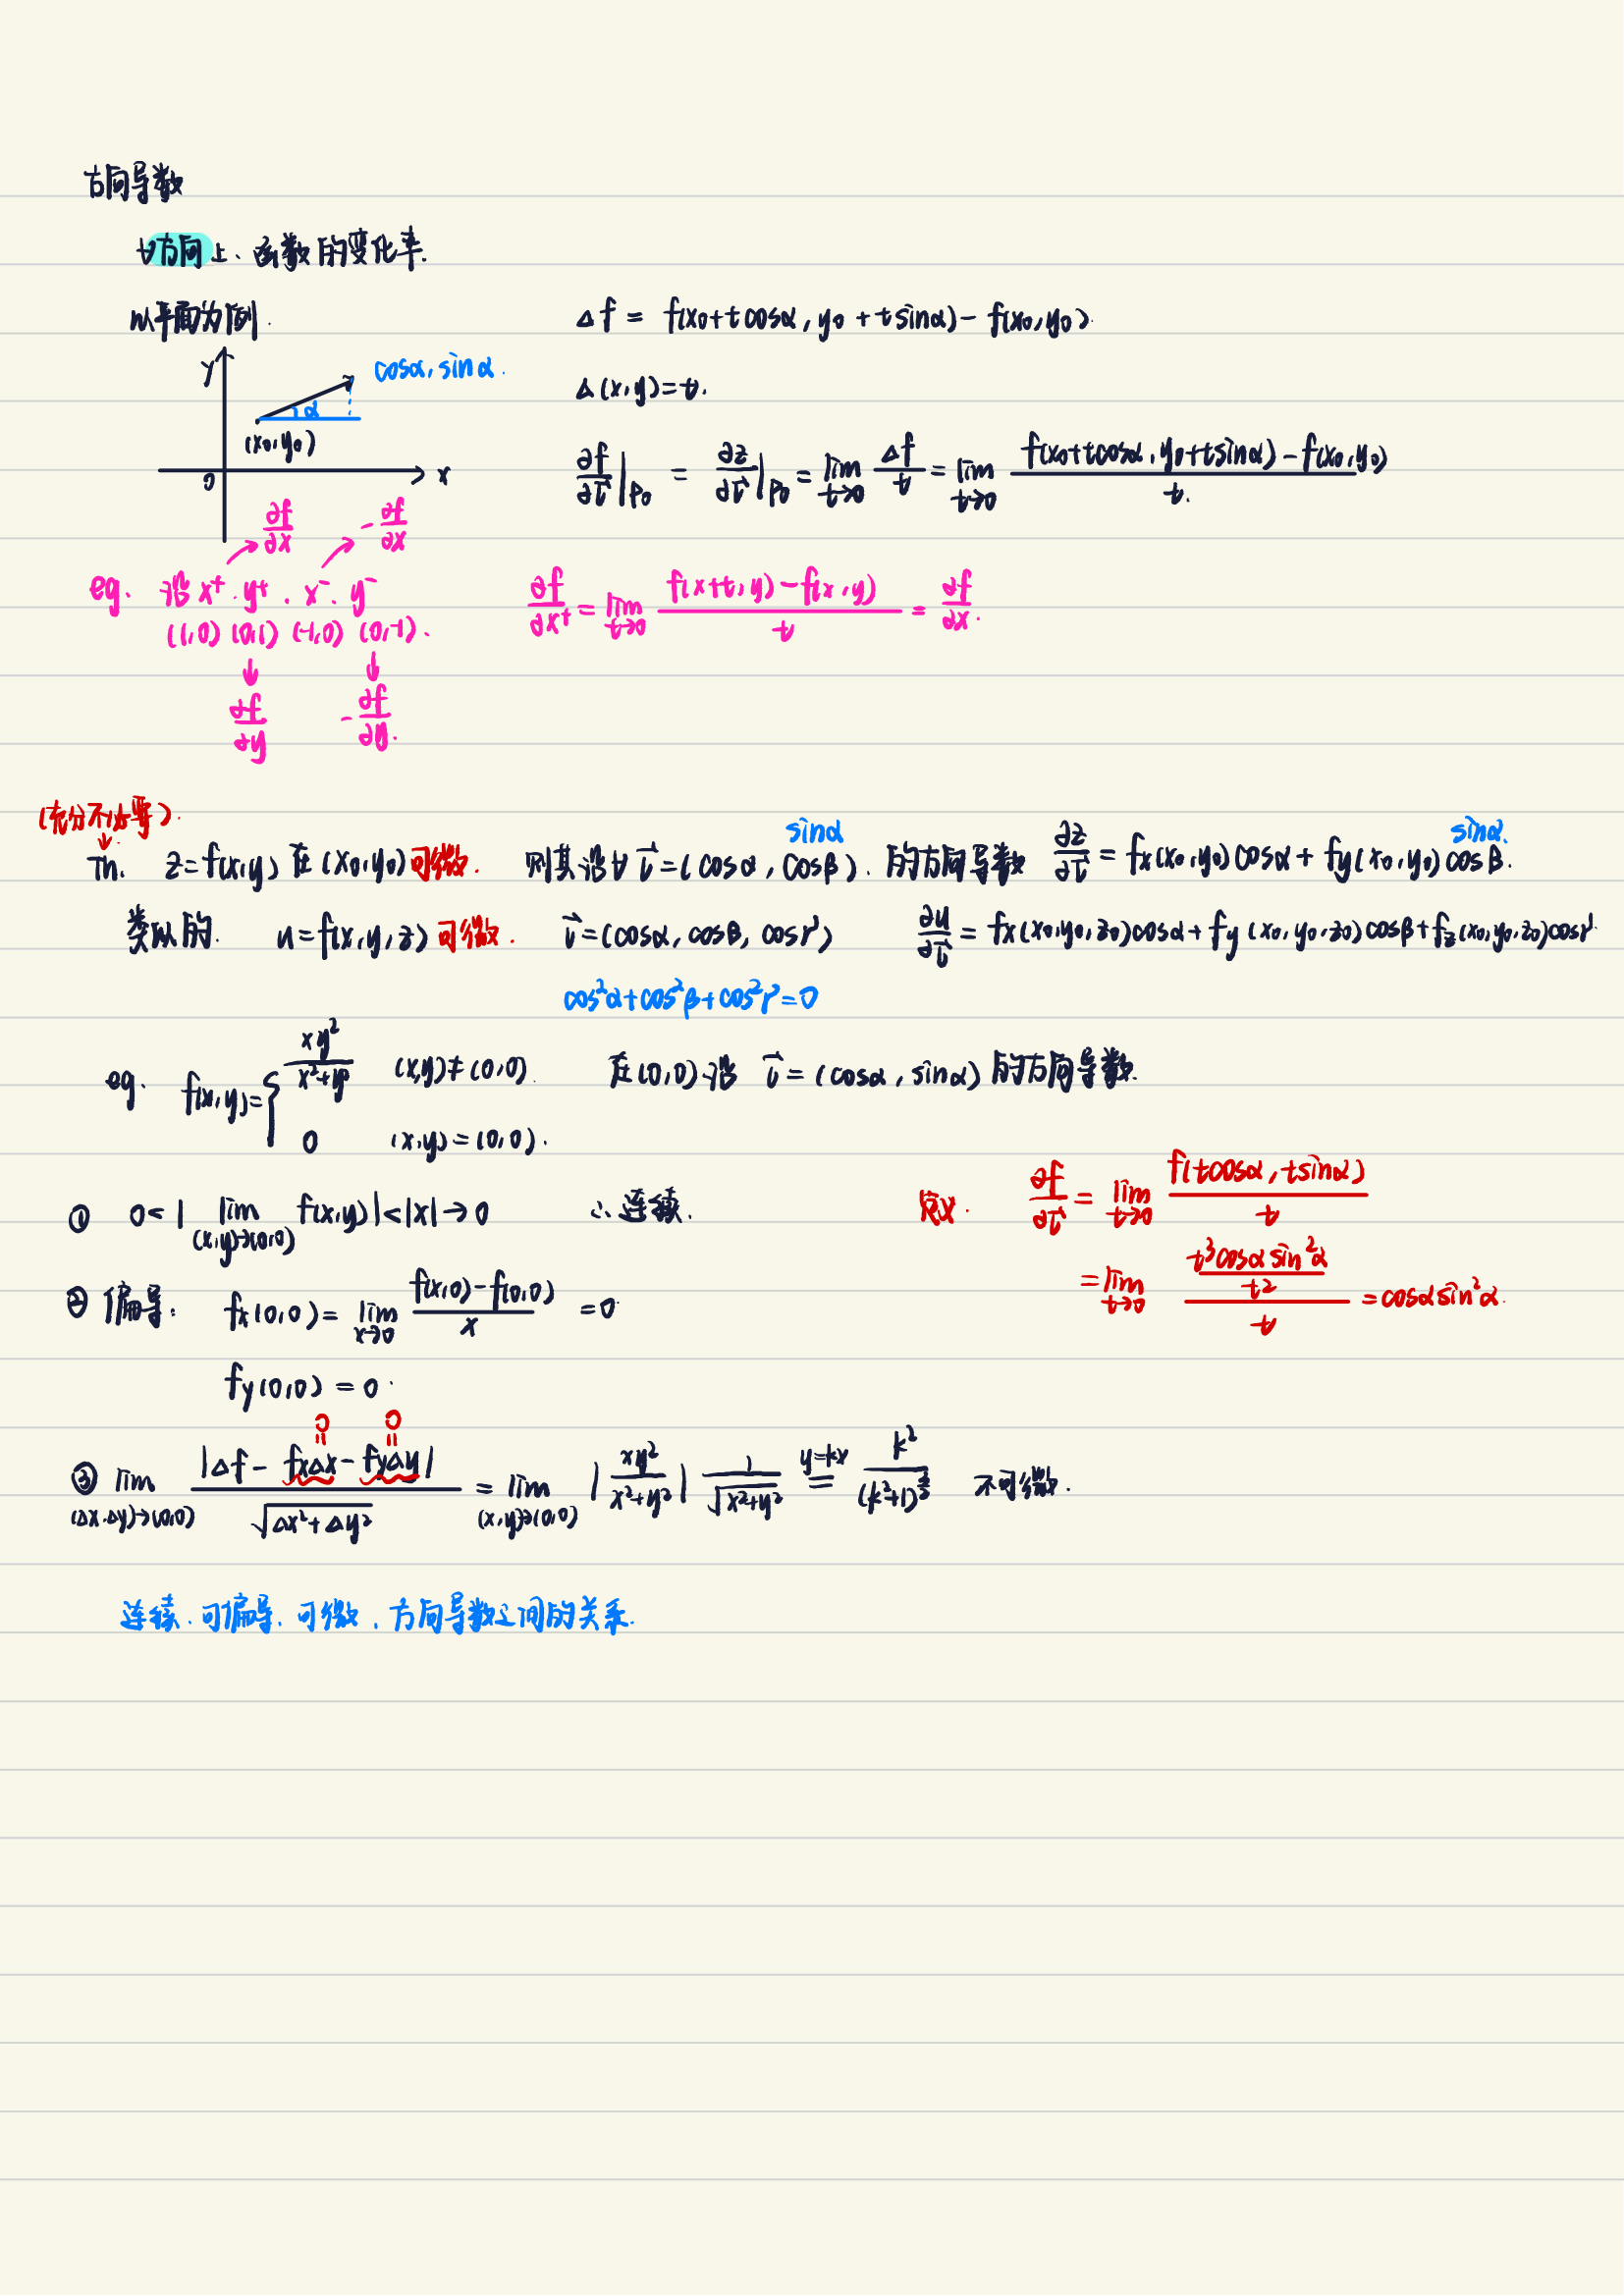 方向导数
∀方向上、函数的变化率.
以平面为例.
Δf = f(x₀+tcosα, y₀+tsinα) - f(x₀,y₀).
y
cosα, sinα.
α
(x₀,y₀)
0
x
Δ(x,y)=t.
∂f/∂l⃗|P₀ = ∂z/∂l⃗|P₀ = lim t→0 Δf/t = lim t→0 (f(x₀+tcosα, y₀+tsinα) - f(x₀,y₀))/t.
∂f/∂x -∂f/∂x
eg. 沿 x⁺. y⁺. x⁻. y⁻
∂f/∂x⁺ = lim t→0 (f(x+t,y) - f(x,y))/t = ∂f/∂x.
(1,0) (0,1) (-1,0) (0,-1).
∂f/∂y -∂f/∂y.
(充分不必要).
sinα sinα.
Th. z=f(x,y) 在 (x₀,y₀) 可微. 则其沿∀ l⃗=(cosα, cosβ). 的方向导数 ∂z/∂l⃗ = fx(x₀,y₀)cosα + fy(x₀,y₀)cosβ.
类似的. u=f(x,y,z) 可微. l⃗=(cosα, cosβ, cosr) ∂u/∂l⃗ = fx(x₀,y₀,z₀)cosα + fy(x₀,y₀,z₀)cosβ + fz(x₀,y₀,z₀)cosr.
cos²α+cos²β+cos²r=0
eg. f(x,y)={ xy²/(x²+y²) (x,y)≠(0,0). 在(0,0)沿 l⃗=(cosα, sinα) 的方向导数.
0 (x,y)=(0,0).
① 0<| lim (x,y)→(0,0) f(x,y)|<|x|→0 ∴连续.
定义. ∂f/∂l⃗ = lim t→0 f(tcosα, tsinα)/t
= lim t→0 (t³cosαsin²α/t²)/t = cosαsin²α.
② 偏导: fx(0,0) = lim x→0 (f(x,0)-f(0,0))/x =0.
fy(0,0) = 0.
0 0
③ lim (Δx,Δy)→(0,0) |Δf - fxΔx - fyΔy|/√(Δx²+Δy²) = lim (x,y)→(0,0) |xy²/(x²+y²)| 1/√(x²+y²) y=kx = k²/(k²+1)^(3/2) 不可微.
连续.可偏导.可微.方向导数之间的关系.